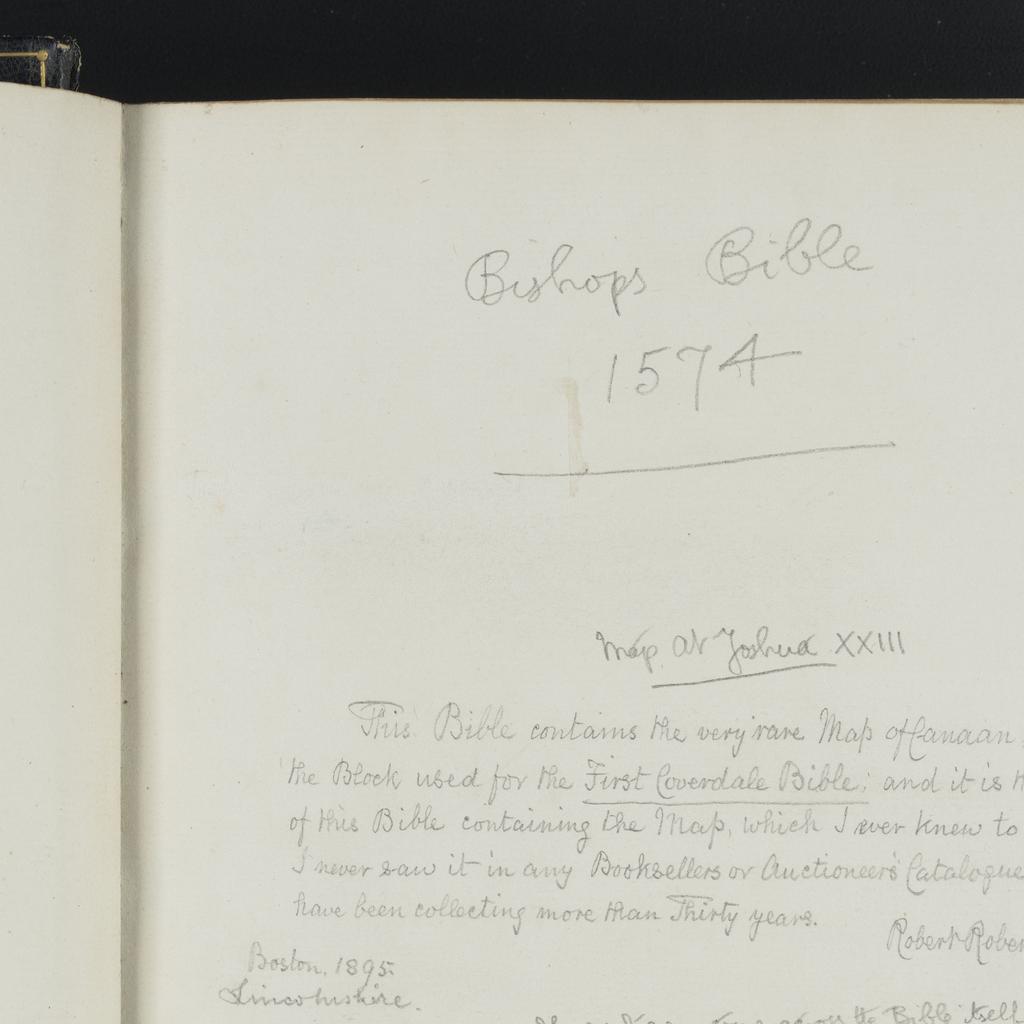 Bishops Bible
1574
Map at Joshua XXIII
This Bible contains the very rare Map of Canaan
the Block used for the First Coverdale Bible; and it is
of this Bible containing the Map, which I ever knew to
I never saw it in any Booksellers or Auctioneer's Catalogue
have been collecting more than Thirty years.
Robert Rober
Boston, 1895.
Lincolnshire.
the Bible itself